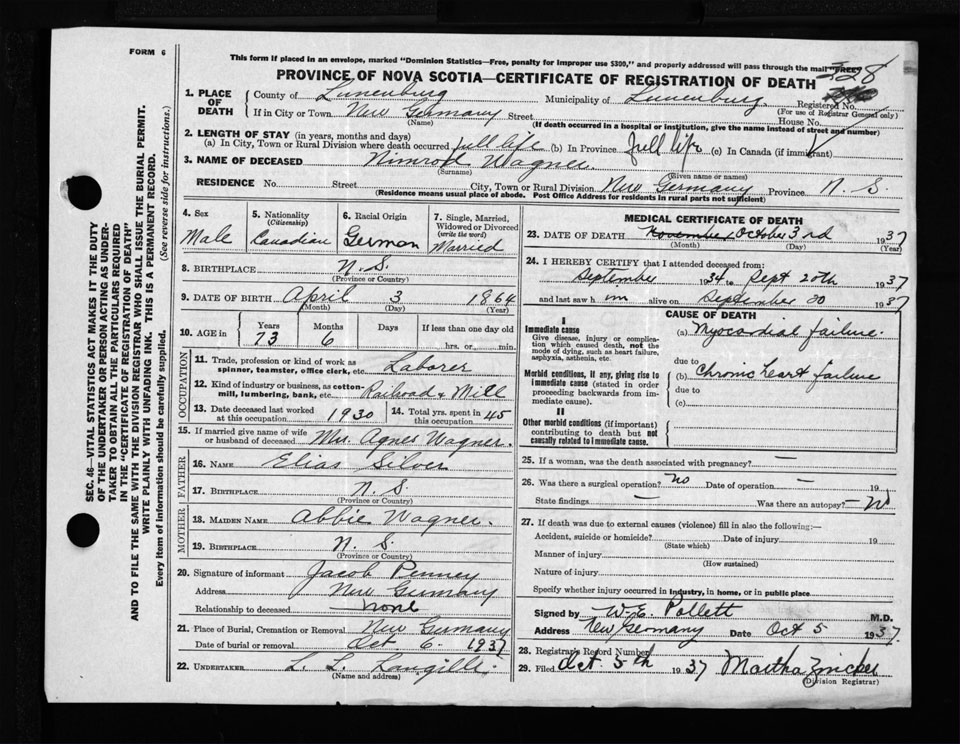 FORM 6
This form if placed in an envelope, marked "Dominion Statistics—Free, penalty for improper use $300," and properly addressed will pass through the mail "FREE"
PROVINCE OF NOVA SCOTIA—CERTIFICATE OF REGISTRATION OF DEATH
328
1. PLACE OF DEATH
County of Lunenburg Municipality of Lunenburg Registered No.
(For use of Registrar General only)
If in City or Town New Germany Street House No.
(Name) (If death occurred in a hospital or institution, give the name instead of street and number)
2. LENGTH OF STAY (in years, months and days)
(a) In City, Town or Rural Division where death occurred full life (b) In Province full life (c) In Canada (if immigrant)
3. NAME OF DECEASED Nimrod Wagner.
(Surname) (Given name or names)
RESIDENCE No. Street City, Town or Rural Division New Germany Province N. S.
(Residence means usual place of abode. Post Office Address for residents in rural parts not sufficient)
4. Sex Male
5. Nationality (Citizenship) Canadian
6. Racial Origin German
7. Single, Married, Widowed or Divorced (write the word) Married
8. BIRTHPLACE N. S.
(Province or Country)
9. DATE OF BIRTH April 3 1864
(Month) (Day) (Year)
10. AGE in Years 73 Months 6 Days If less than one day old hrs. or min.
OCCUPATION
11. Trade, profession or kind of work as spinner, teamster, office clerk, etc. Laborer
12. Kind of industry or business, as cotton-mill, lumbering, bank, etc. Railroad & Mill
13. Date deceased last worked at this occupation 1930 14. Total yrs. spent in this occupation 45
15. If married give name of wife or husband of deceased Mrs. Agnes Wagner.
FATHER
16. NAME Elias Silver
17. BIRTHPLACE N. S.
(Province or Country)
MOTHER
18. MAIDEN NAME Abbie Wagner.
19. BIRTHPLACE N. S.
(Province or Country)
20. Signature of informant Jacob Penney
Address New Germany
Relationship to deceased none
21. Place of Burial, Cremation or Removal New Germany
Date of burial or removal Oct 6 1937
22. UNDERTAKER L. L. Langille
(Name and address)
MEDICAL CERTIFICATE OF DEATH
23. DATE OF DEATH November October 3rd 1937
(Month) (Day) (Year)
24. I HEREBY CERTIFY that I attended deceased from:
September 1934 to Sept 20th 1937
and last saw him alive on September 20 1937
CAUSE OF DEATH
I
Immediate cause
Give disease, injury or complication which caused death, not the mode of dying, such as heart failure, asphyxia, asthenia, etc.
(a) Myocardial failure.
due to
Morbid conditions, if any, giving rise to immediate cause (stated in order proceeding backwards from immediate cause).
(b) Chronic heart failure
due to
(c)
II
Other morbid conditions (if important) contributing to death but not causally related to immediate cause.
25. If a woman, was the death associated with pregnancy? —
26. Was there a surgical operation? No Date of operation — 19
State findings — Was there an autopsy? — No
27. If death was due to external causes (violence) fill in also the following:—
Accident, suicide or homicide? Date of injury 19
(State which)
Manner of injury
(How sustained)
Nature of injury
Specify whether injury occurred in industry, in home, or in public place
Signed by W. E. Pollett M.D.
Address New Germany Date Oct 5 1937
28. Registrar's Record Number
29. Filed Oct. 5th 1937 Martha Zwicker
(Division Registrar)
SEC. 46—VITAL STATISTICS ACT MAKES IT THE DUTY
OF THE UNDERTAKER OR PERSON ACTING AS UNDER-
TAKER TO OBTAIN ALL THE PARTICULARS REQUIRED
IN THE "CERTIFICATE OF REGISTRATION OF DEATH"
AND TO FILE THE SAME WITH THE DIVISION REGISTRAR WHO SHALL ISSUE THE BURIAL PERMIT.
WRITE PLAINLY WITH UNFADING INK. THIS IS A PERMANENT RECORD.
Every item of information should be carefully supplied. (See reverse side for instructions.)